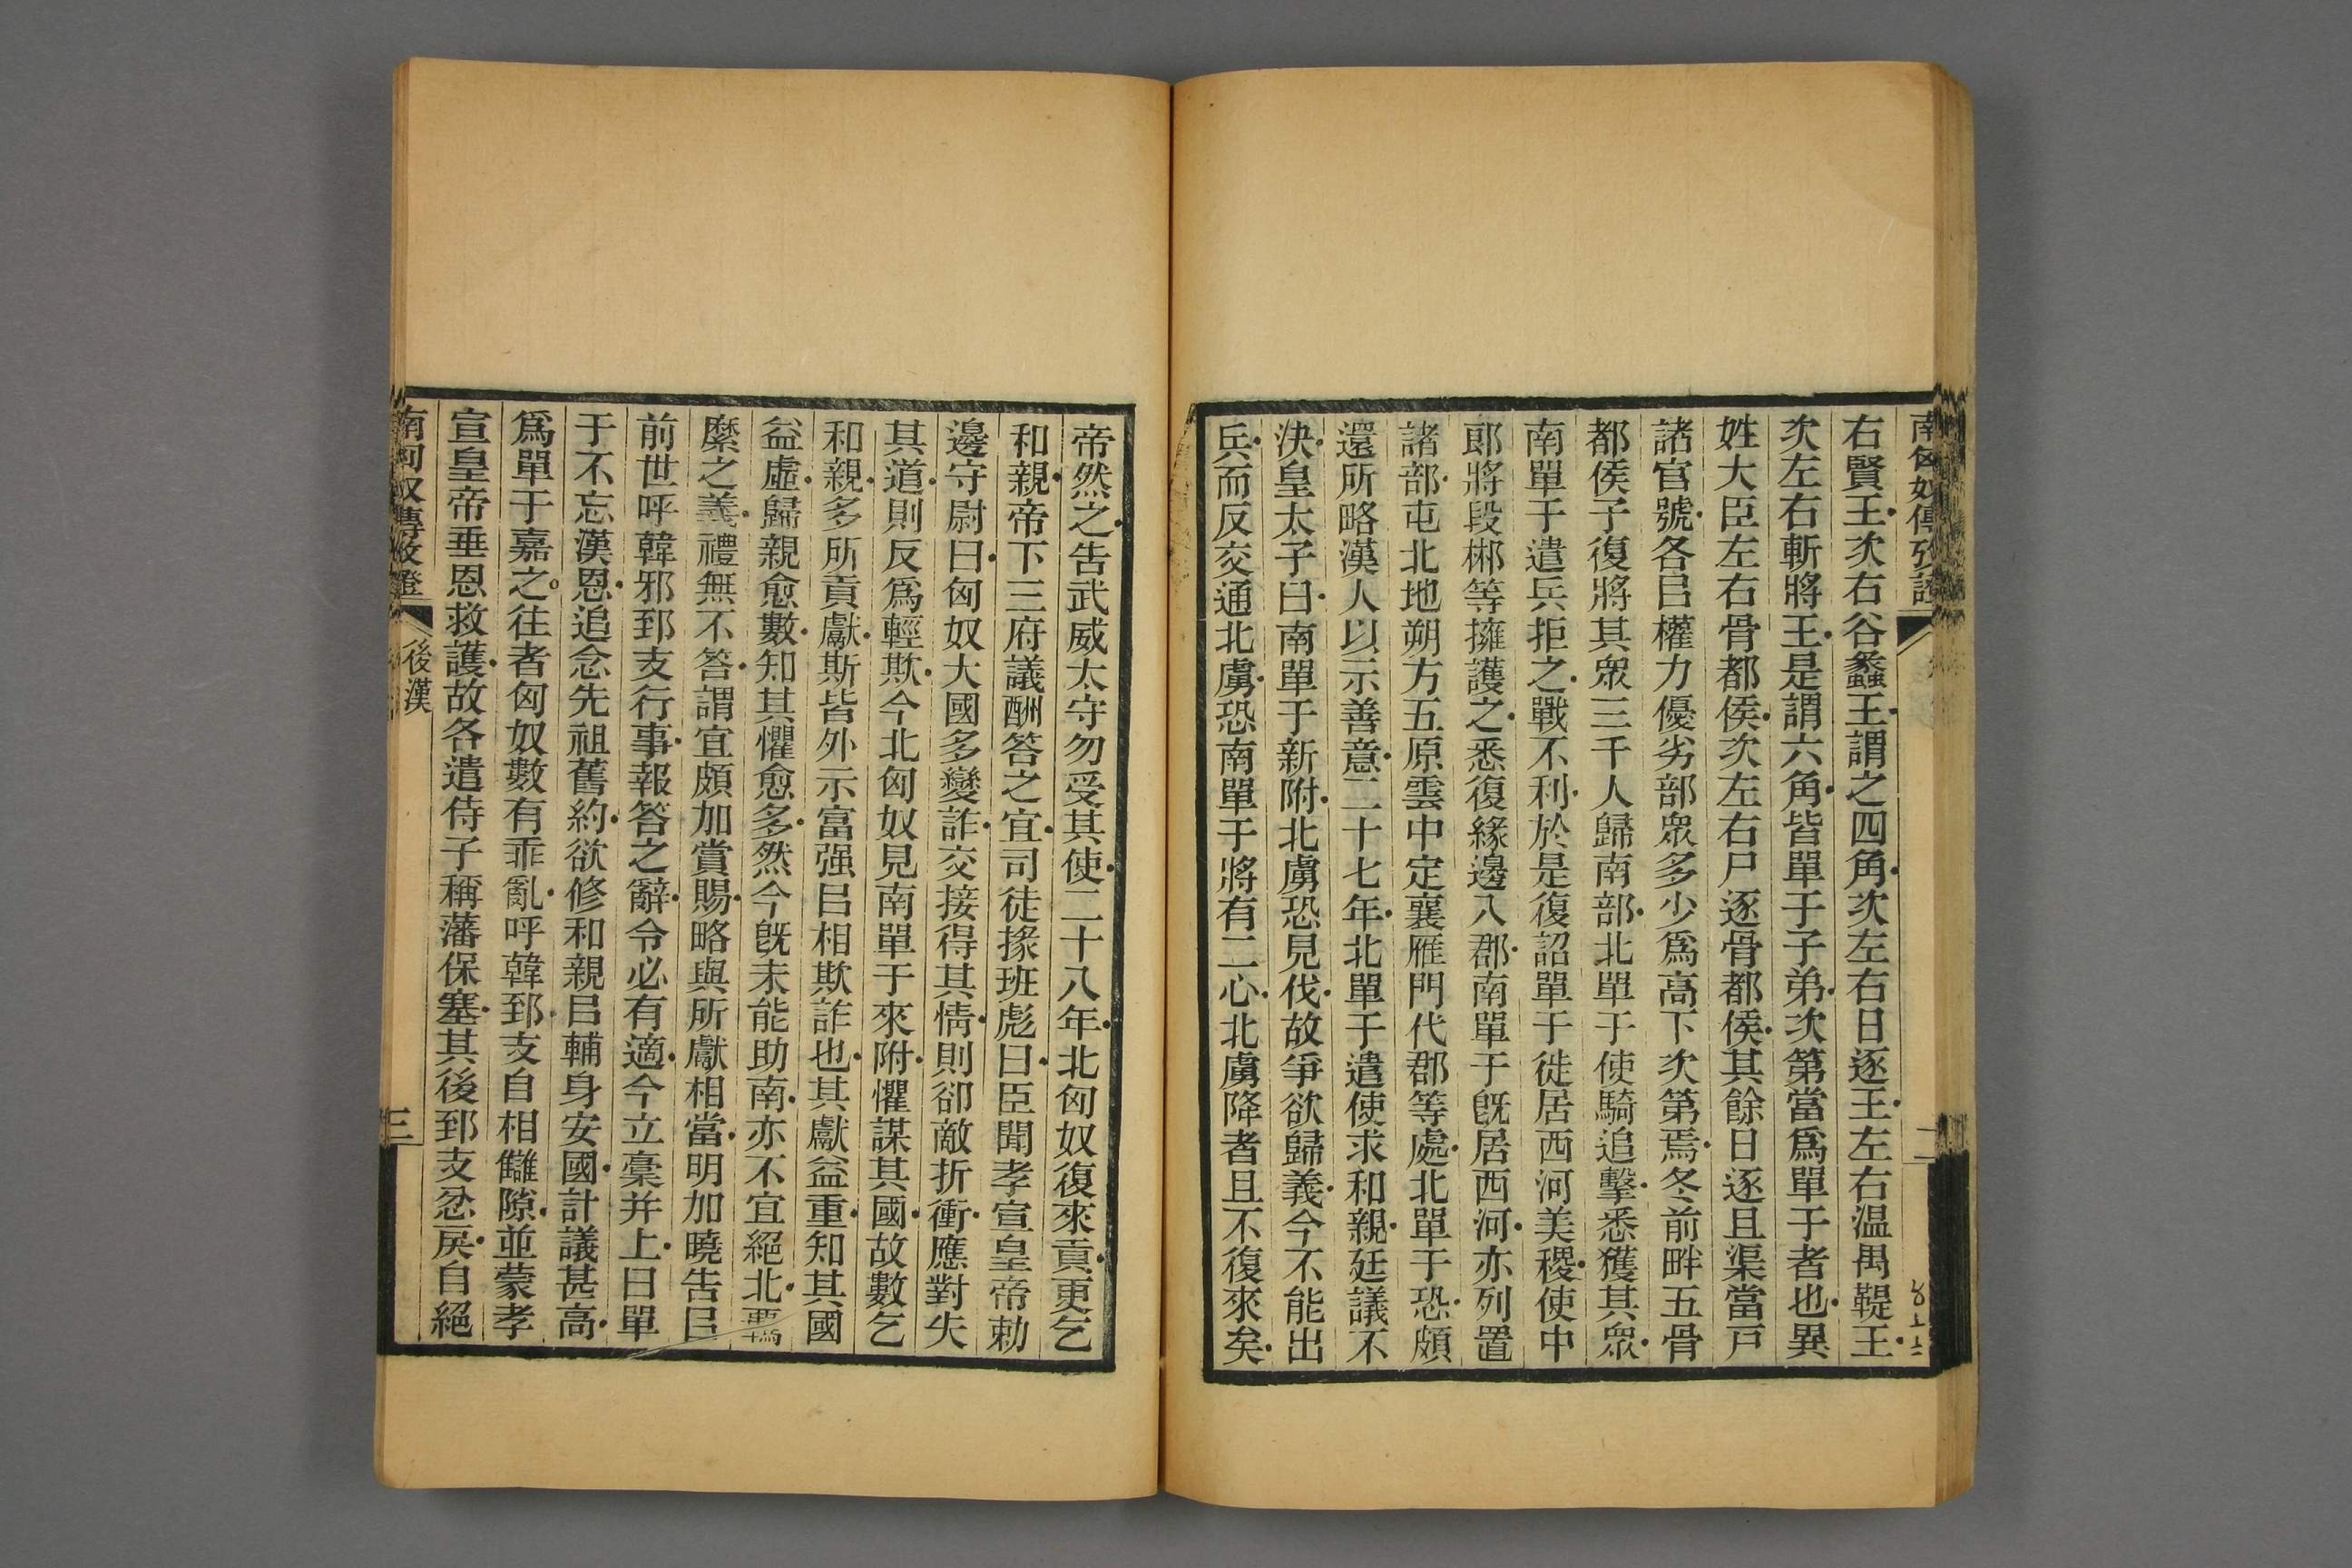 南匈奴傳攷證
二
右賢王次右谷蠡王謂之四角次左右日逐王左右温禺鞮王
次左右斬將王是謂六角皆單于子弟次第當爲單于者也異
姓大臣左右骨都侯次左右尸逐骨都侯其餘日逐且渠當戸
諸官號各㠯權力優劣部衆多少爲高下次第焉冬前畔五骨
都侯子復將其衆三千人歸南部北單于使騎追擊悉獲其衆
南單于遣兵拒之戰不利於是復詔單于徙居西河美稷使中
郎將段郴等擁護之悉復緣邊八郡南單于旣居西河亦列置
諸部屯北地朔方五原雲中定襄雁門代郡等處北單于恐頗
還所略漢人以示善意二十七年北單于遣使求和親廷議不
決皇太子曰南單于新附北虜恐見伐故爭欲歸義今不能出
兵而反交通北虜恐南單于將有二心北虜降者且不復來矣
帝然之告武威太守勿受其使二十八年北匈奴復來貢更乞
和親帝下三府議酬答之宜司徒掾班彪曰臣聞孝宣皇帝勅
邊守尉曰匈奴大國多變詐交接得其情則卻敵折衝應對失
其道則反爲輕欺今北匈奴見南單于來附懼謀其國故數乞
和親多所貢獻斯皆外示富强㠯相欺詐也其獻益重知其國
益虛歸親愈數知其懼愈多然今旣未能助南亦不宜絕北覊
縻之義禮無不答謂宜頗加賞賜略與所獻相當明加曉告㠯
前世呼韓邪郅支行事報答之辭令必有適今立稾并上曰單
于不忘漢恩追念先祖舊約欲修和親㠯輔身安國計議甚高
爲單于嘉之往者匈奴數有乖亂呼韓郅支自相讎隙並蒙孝
宣皇帝垂恩救護故各遣侍子稱藩保塞其後郅支忿戾自絕
南匈奴傳攷證
後漢
三